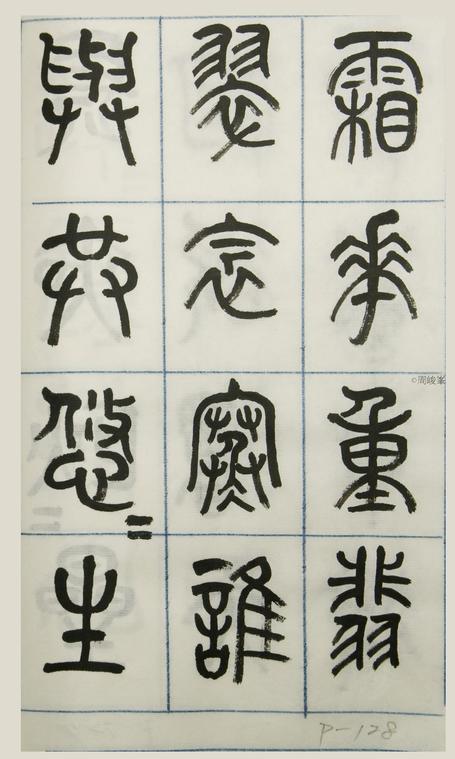 霜華重翡
翠衾寒誰
與共悠〻生
©周峻峯
P-128